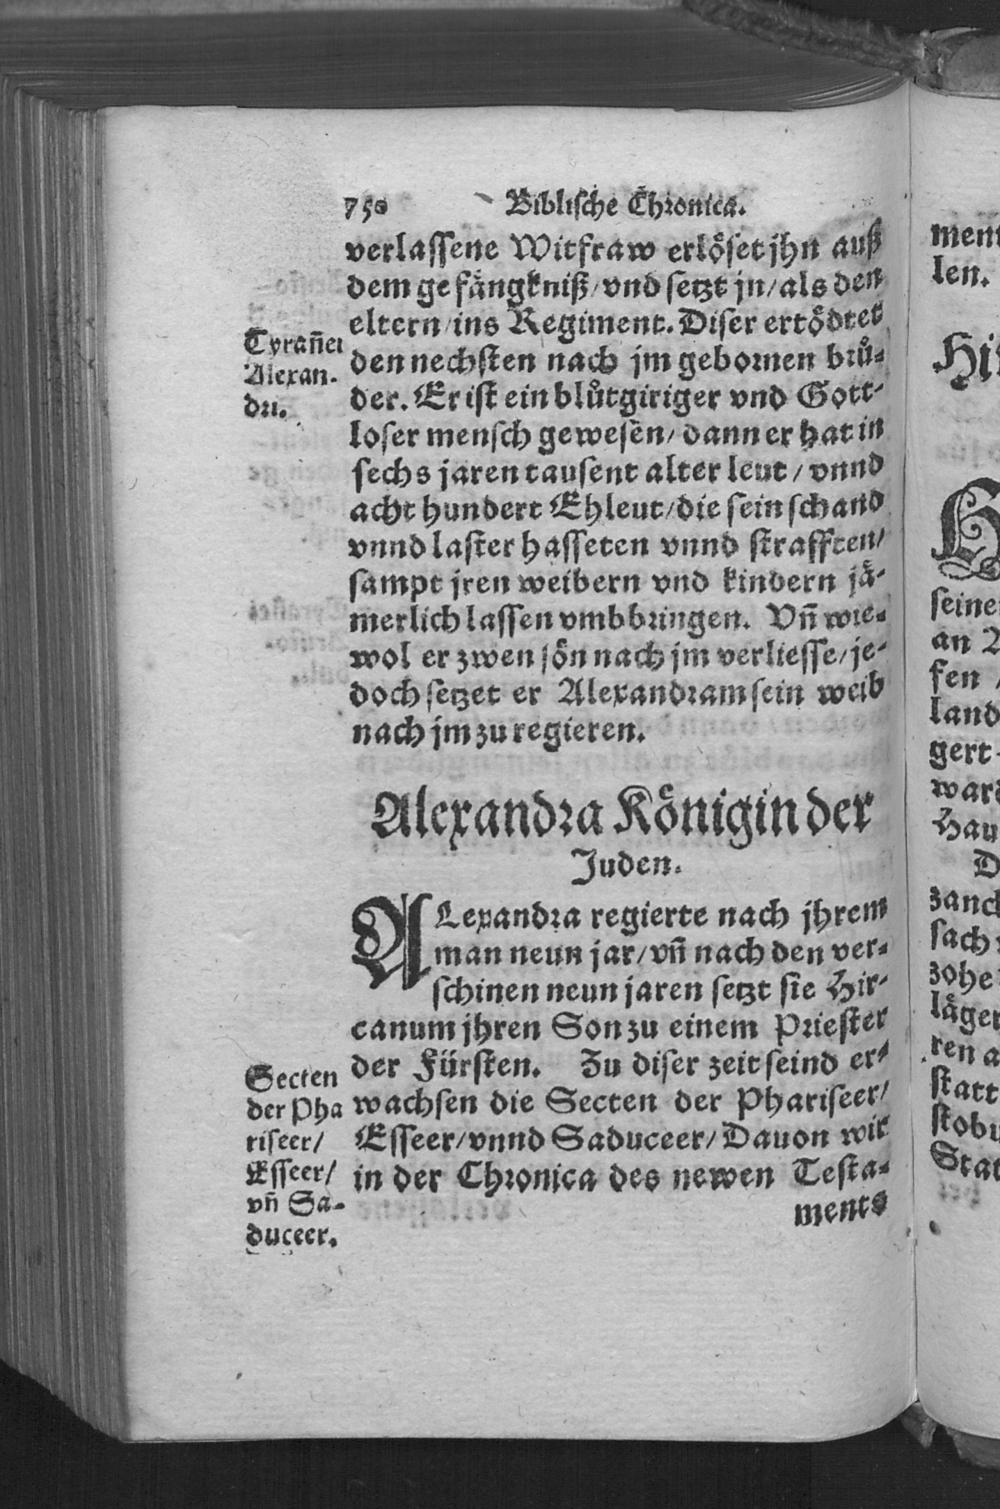 750 Biblische Chronica.
verlassene Witfraw erlöset jhn auß
dem gefängkniß/ vnd setzt jn/ als den
eltern/ ins Regiment. Diser ertödtet
den nechsten nach jm gebornen brů-
der. Er ist ein blůtgiriger vnd Gott-
loser mensch gewesen/ dann er hat in
sechs jaren tausent alter leut/ vnnd
acht hundert Ehleut/ die sein schand
vnnd laster hasseten vnnd strafften/
sampt jren weibern vnd kindern jä-
merlich lassen vmbbringen. Vñ wie-
wol er zwen sön nach jm verliesse/ je-
doch setzet er Alexandram sein weib
nach jm zu regieren.
Tyrañei
Alexan-
dri.
Alexandra Königin der
Juden.
ALexandra regierte nach jhrem
man neun jar/ vñ nach den ver-
schinen neun jaren setzt sie Hir-
canum jhren Son zu einem Priester
der Fürsten. Zu diser zeit seind er-
wachsen die Secten der Phariseer/
Esseer/ vnnd Saduceer/ Dauon wir
in der Chronica des newen Testa-
ments
Secten
der Pha
riseer/
Esseer/
vñ Sa-
duceer.
ment
len.
Hi
seine
an
fen
land
gert
ward
Hau
D
zanck
sach
zohe
läger
ren a
statt
stobu
Stat